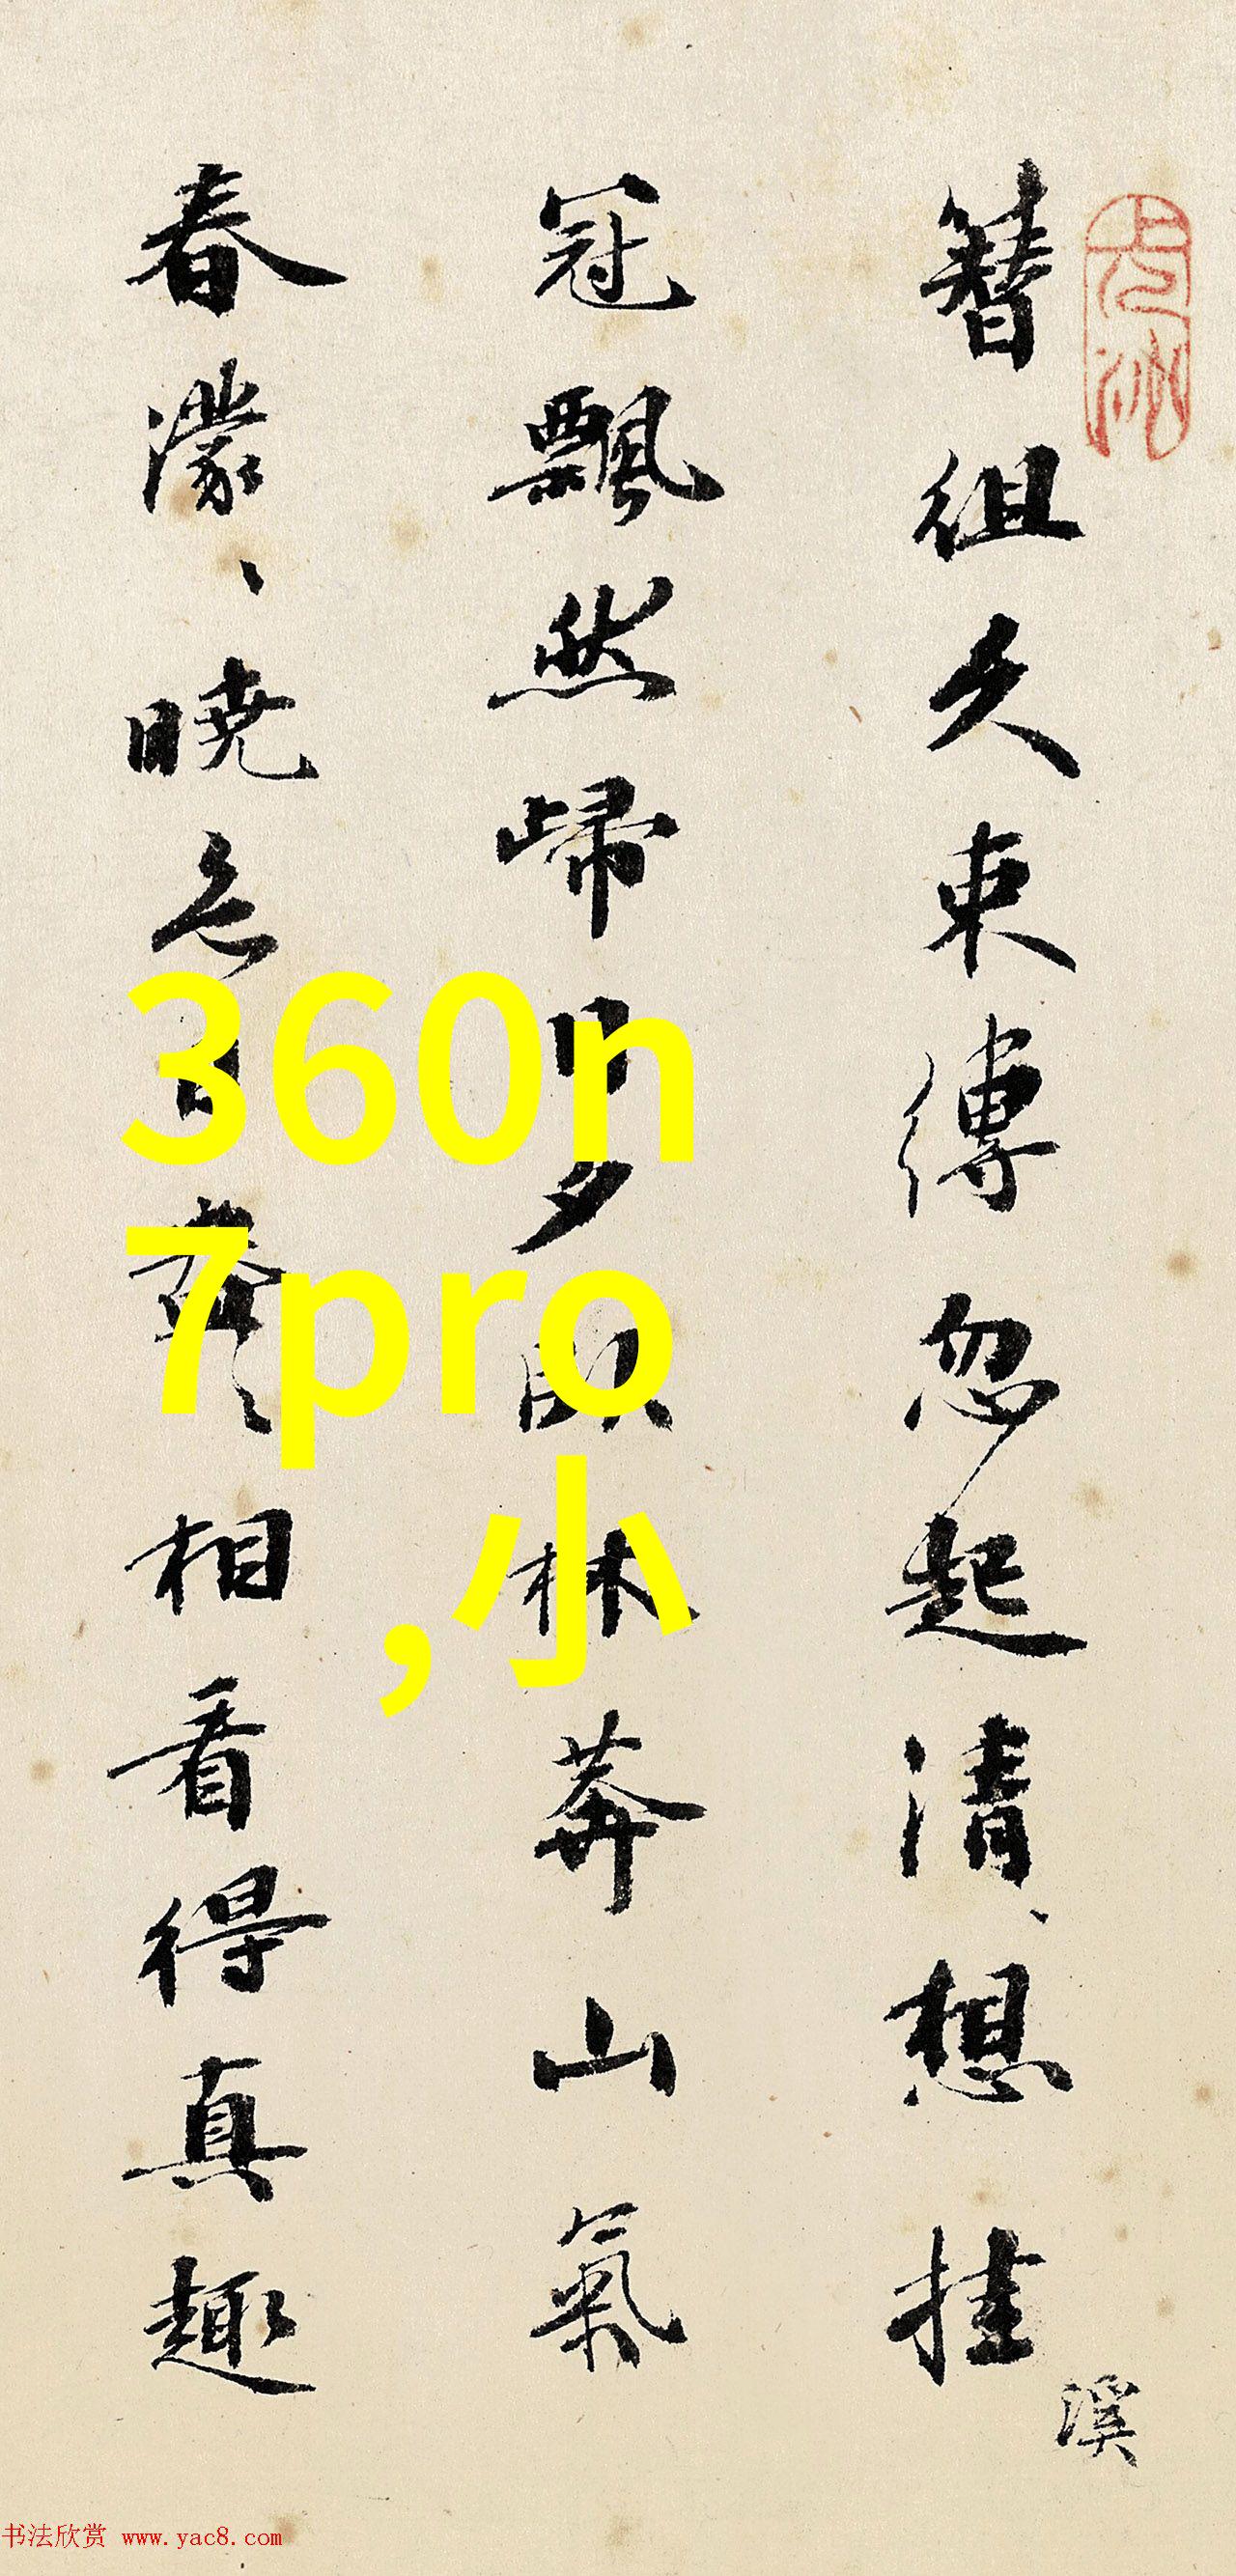 簪組久束縛忽起清想挂
溪
冠飄然歸日夕臥林莽山氣
春濛、曉色相看得真趣
360n
7pro
,小
书法欣赏 www.yac8.com